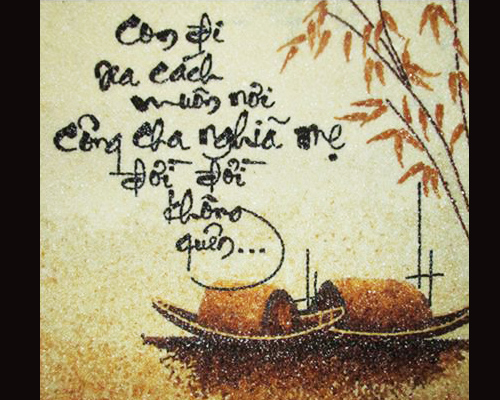 Con đi
xa cách
muôn nơi
Công cha nghĩa mẹ
đời đời
không
quên...